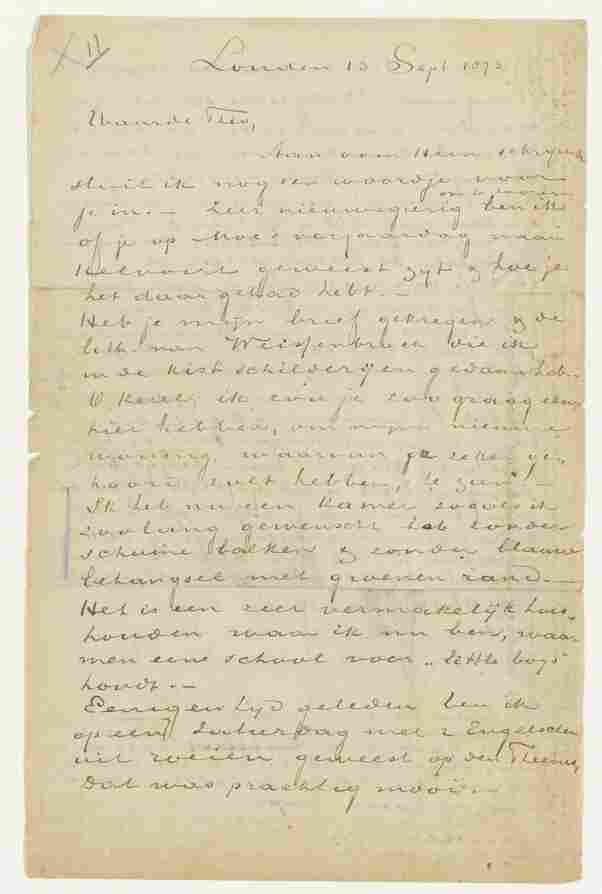 11
Londen 13 Sept 1873
Waarde Theo,
Aan oom Hein schrijvende
sluit ik nog een woordje voor
je in. — Zeer nieuwsgierig om te weten ben ik
of je op Moe's verjaardag naar
Helvoirt geweest zijt & hoe je
het daar gehad hebt. —
Heb je mijn brief gekregen & de
lith. van Weissenbruch die ik
in de kist schilderijen gedaan heb.
O kerel, ik zou je zoo graag eens
hier hebben, om mijn nieuwe
woning, waarvan je zeker ge-
hoord zult hebben, te zien! —
Ik heb nu een kamer zooals ik
zoolang gewenscht heb zonder
schuine balken & zonder blauw
behangsel met groenen rand. —
Het is een zeer vermakelijk huis-
houden waar ik nu ben, waar
men eene school voor „little boys"
houdt. —
Eenigen tijd geleden ben ik
op een Saturdag met 2 Engelschen
uit roeien geweest op den Theems,
dat was prachtig mooi. —